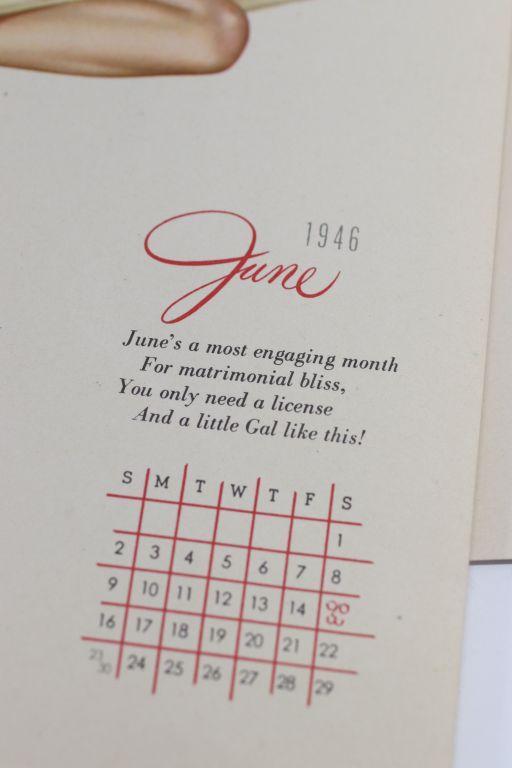 1946
June
June's a most engaging month
For matrimonial bliss,
You only need a license
And a little Gal like this!
S M T W T F S
1
2 3 4 5 6 7 8
9 10 11 12 13 14
16 17 18 19 20 21 22
23 30 24 25 26 27 28 29